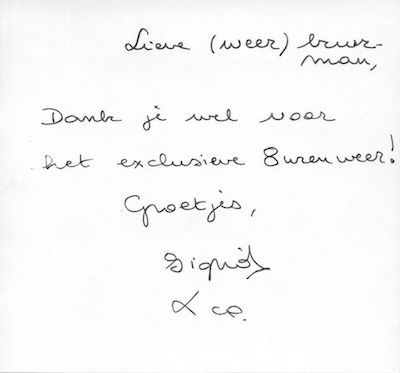 Lieve (weer) buur-
man,
Dank je wel voor
het exclusieve Burenweer!
Groetjes,
Sigrid
& co.